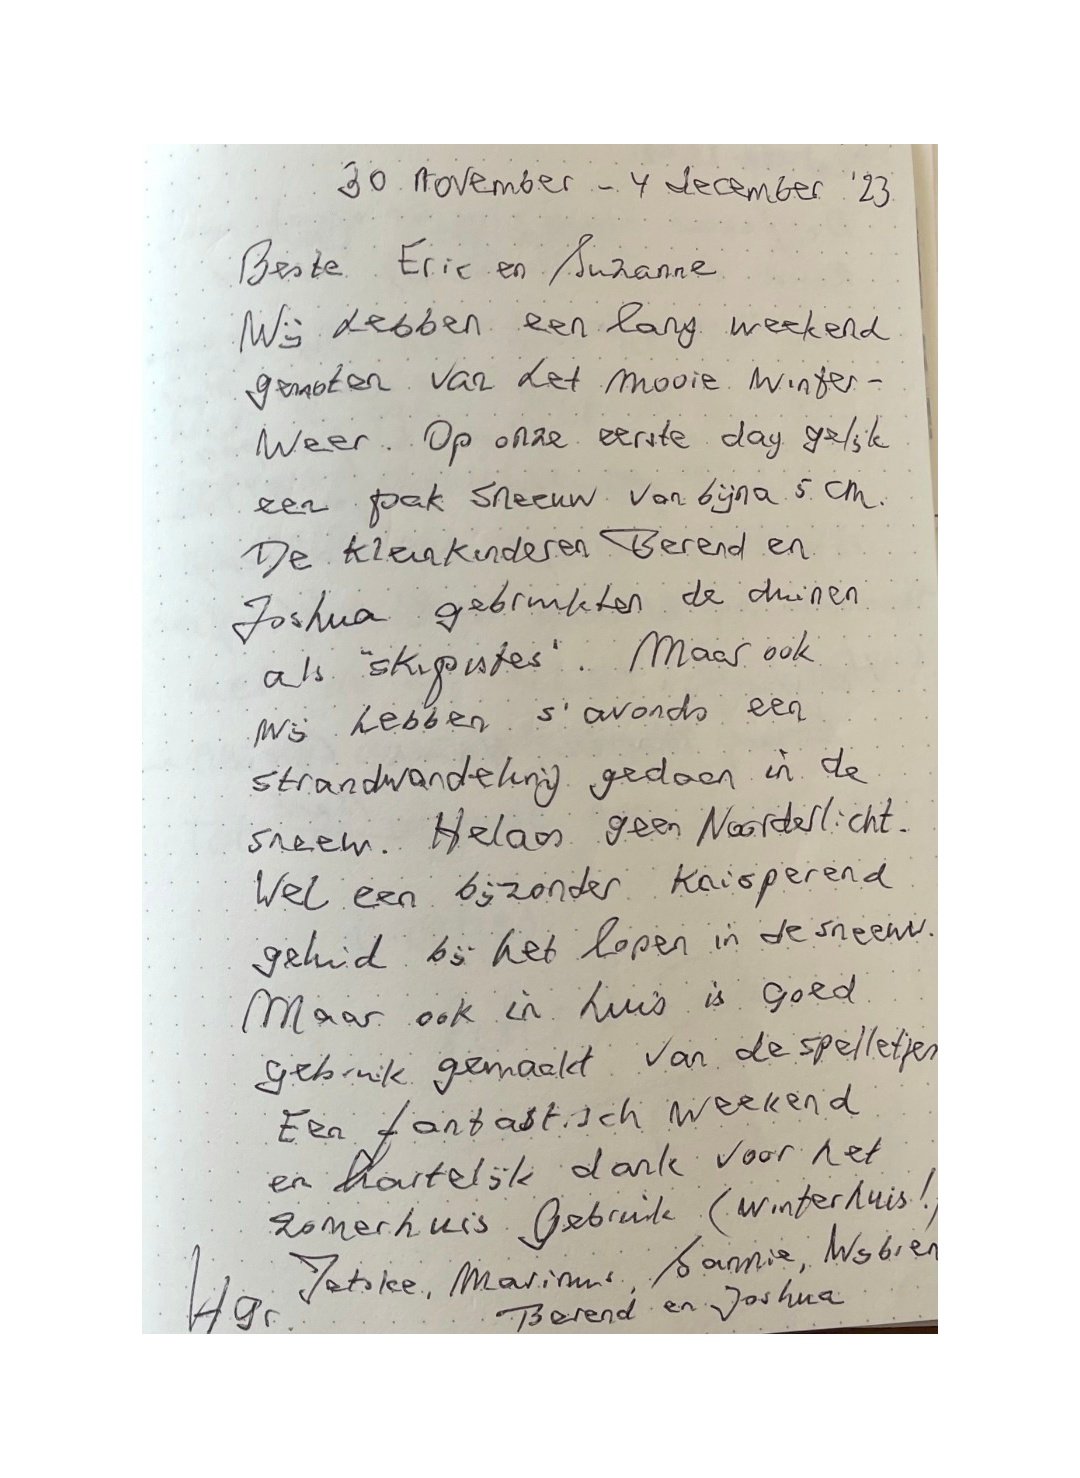 30 november - 4 december '23
Beste Eric en Suzanne
Wij hebben een lang weekend
genoten van het mooie winter-
weer. Op onze eerste dag gelijk
een pak sneeuw van bijna 5 cm.
De kleinkinderen Berend en
Joshua gebruikten de duinen
als "skipistes". Maar ook
wij hebben s'avonds een
strandwandeling gedaan in de
sneeuw. Helaas geen Noorderlicht.
Wel een bijzonder knisperend
geluid bij het lopen in de sneeuw.
Maar ook in huis is goed
gebruik gemaakt van de spelletjes
Een fantastisch weekend
en hartelijk dank voor het
zomerhuis gebruik (winterhuis!)
Hgr. Jetske, Marinus, Sannie, Wybren
Berend en Joshua